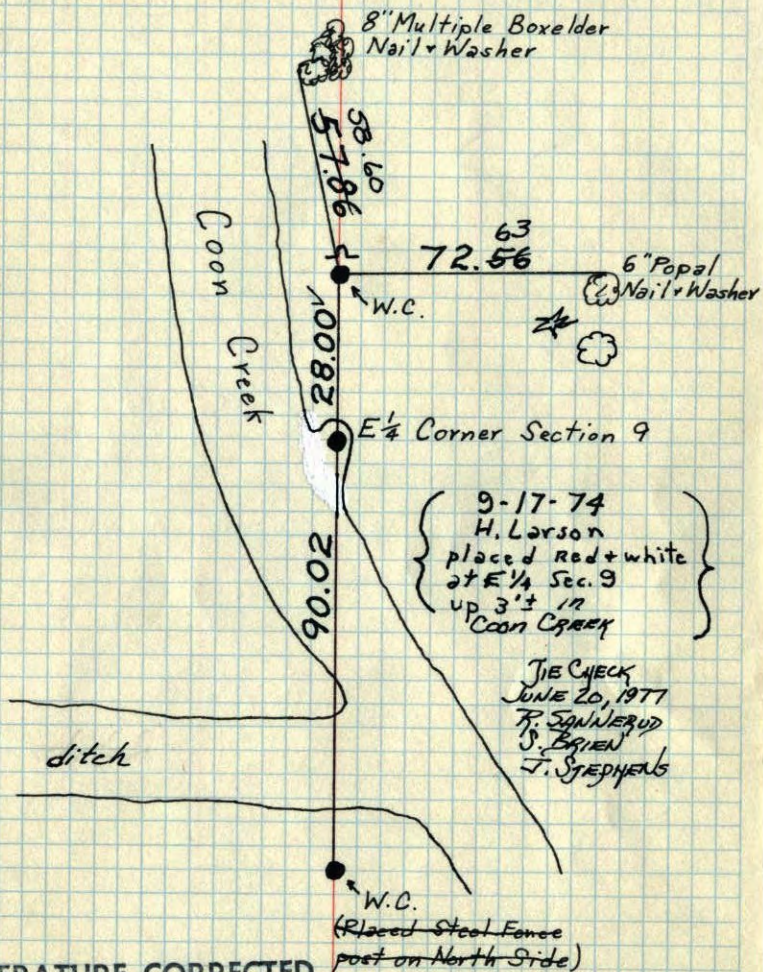 8" Multiple Boxelder
Nail + Washer
58.60
57.86
63
72.56
6" Popal
Nail + Washer
W.C.
Coon Creek
28.00
E 1/4 Corner Section 9
9-17-74
H. Larson
placed Red + white
at E 1/4 Sec. 9
up 3'± in
COON CREEK
90.02
TIE CHECK
JUNE 20, 1977
R. SANNERUD
S. BRIEN
J. STEPHENS
ditch
W.C.
(Placed Steel Fence
post on North Side)
ERATURE CORRECTED